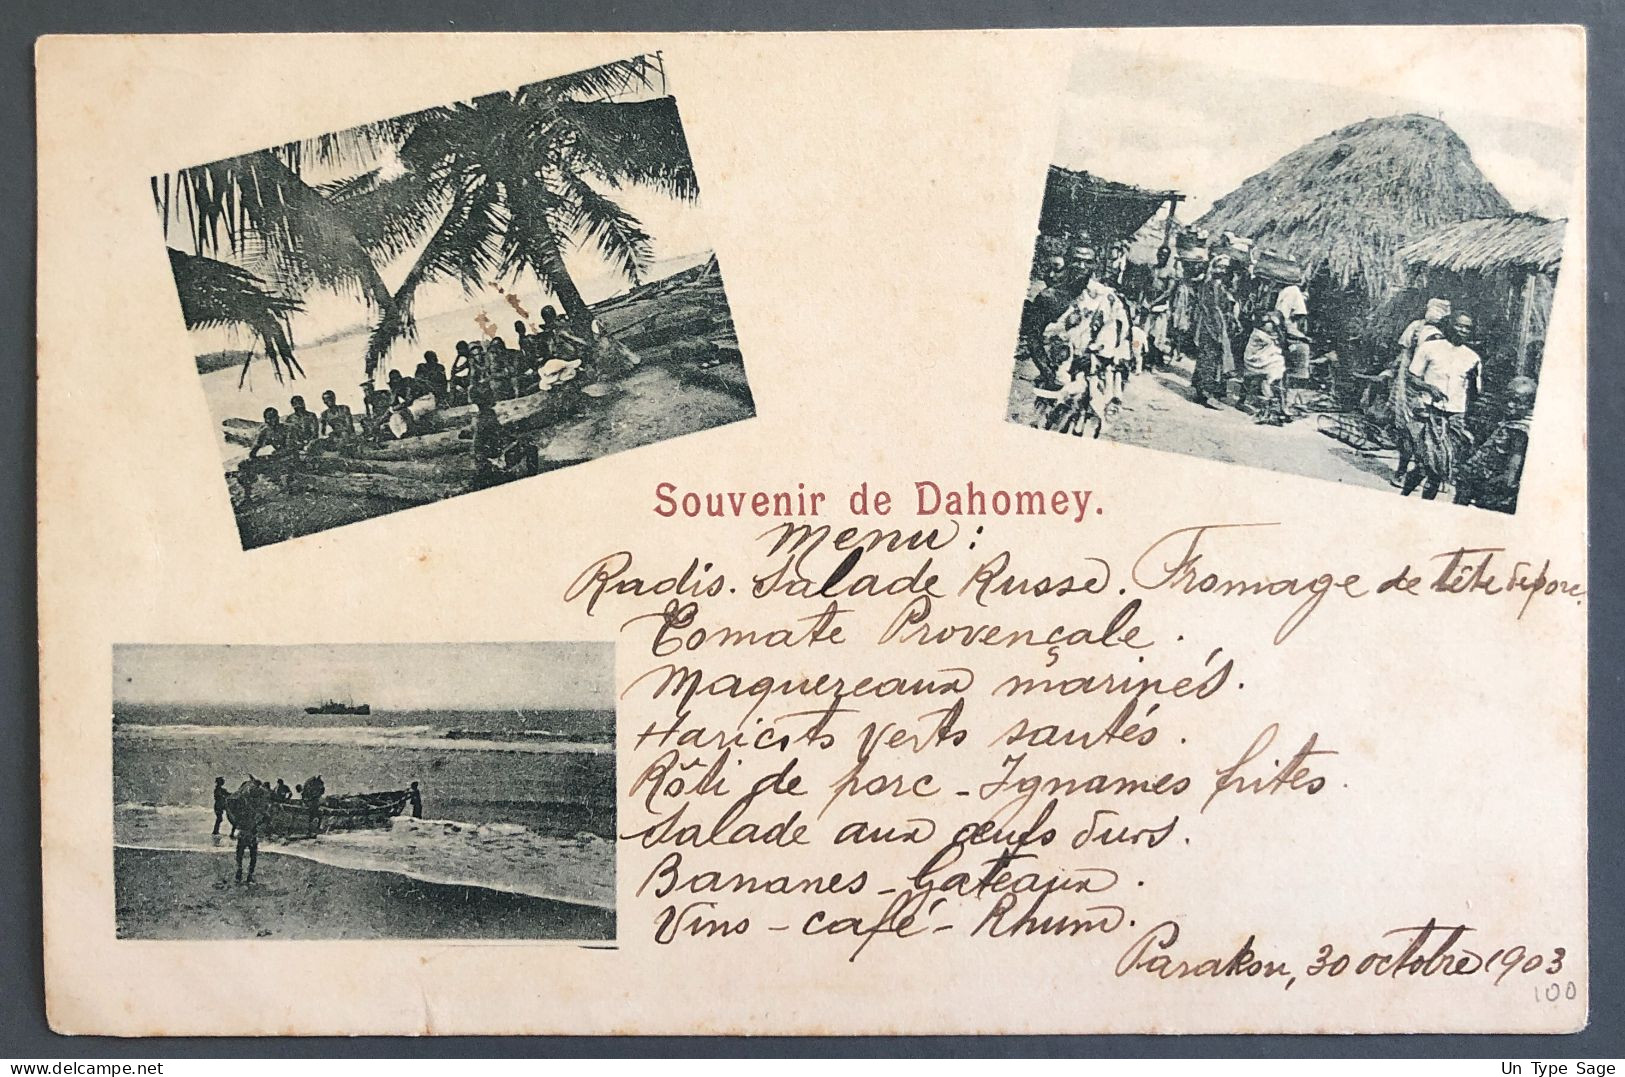 Souvenir de Dahomey.
Menu :
Radis. Salade Russe. Fromage de tête de porc.
Tomate Provençale.
Maquereaux marinés.
Haricots verts sautés.
Rôti de porc - Ignames frites.
Salade aux œufs durs.
Bananes - Gateaux.
Vins - café - Rhum.
Parakou, 30 octobre 1903
100
Un Type Sage